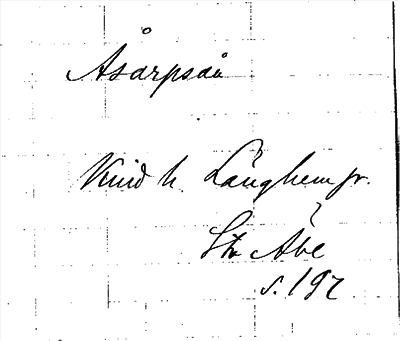 Åsarpsån
Kind h. Långhem sn.
Stn Åbe
s. 197